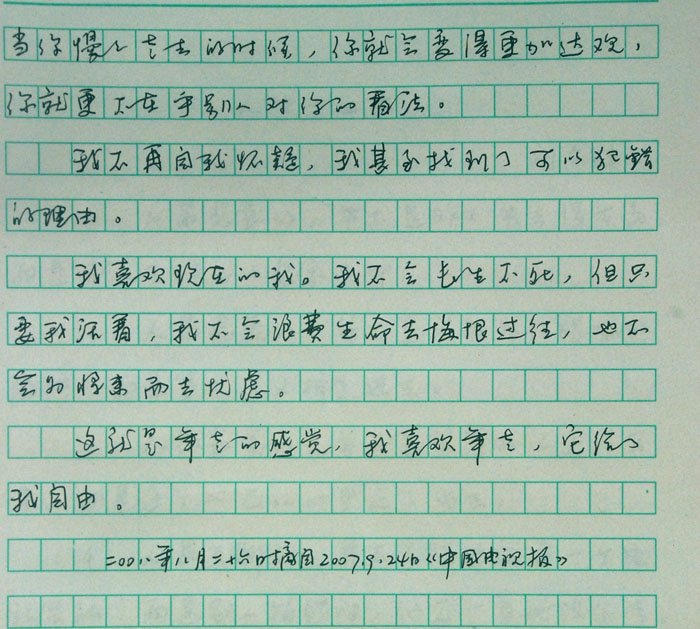 当你慢慢老去的时候，你就会变得更加达观，
你就更不在乎别人对你的看法。
我不再自我怀疑，我甚至找到了可以犯错
的理由。
我喜欢现在的我。我不会长生不死，但只
要我活着，我不会浪费生命去悔恨过往，也不
会为将来而去忧虑。
这就是年老的感觉，我喜欢年老，它给了
我自由。
二00八年八月二十六日摘自2007.9.24日《中国电视报》